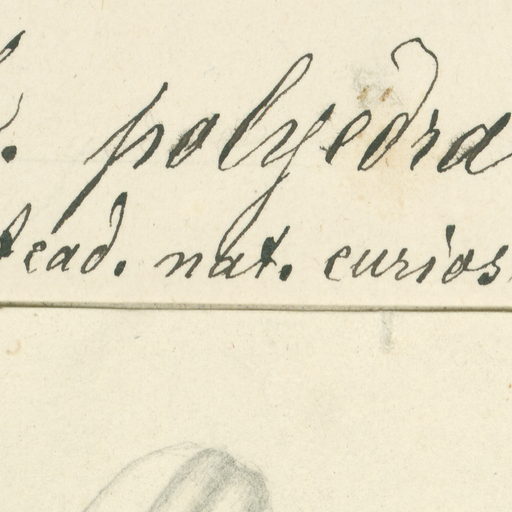 . polyëdra
Acad. nat. curios.